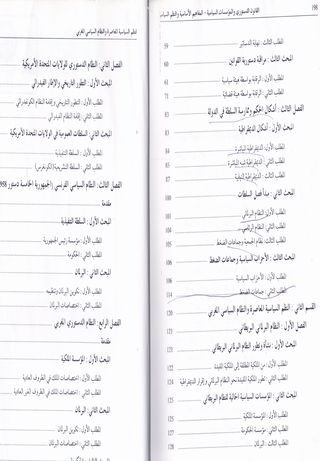 198 القانون الدستوري والمؤسسات السياسية - المفاهيم الأساسية والنظم السياسية
المطلب الثالث: نهاية الدساتير 59
المبحث الثالث: مراقبة دستورية القوانين 60
المطلب الأول: الرقابة بواسطة هيئة سياسية 61
المطلب الثاني: الرقابة بواسطة هيئة قضائية 71
الفصل الثالث: أشكال الحكم وممارسة السلطة في الدولة 83
المبحث الأول: أشكال الديمقراطية 83
المطلب الأول: الديمقراطية المباشرة 84
المطلب الثاني: الديمقراطية شبه المباشرة 85
المطلب الثالث: الديمقراطية النيابية 87
المبحث الثاني: مبدأ فصل السلطات 100
المطلب الأول: النظام البرلماني 101
المطلب الثاني: النظام الرئاسي 103
المطلب الثالث: نظام الجمعية وجماعات الضغط
المبحث الثالث: الأحزاب السياسية وجماعات الضغط 106
المطلب الأول: الأحزاب السياسية 106
المطلب الثاني: جماعات الضغط 114
القسم الثاني: النظم السياسية المعاصرة والنظام السياسي المغربي
الفصل الأول: النظام البرلماني البريطاني 121
المبحث الأول: نشأة وتطور النظام البرلماني البريطاني
المطلب الأول: من الملكية المطلقة إلى الملكية المقيدة
المطلب الثاني: تطور الملكية المقيدة نحو النظام البرلماني وإقرار الديمقراطية 124
المبحث الثاني: المؤسسات السياسية الحالية للنظام البريطاني 125
المطلب الأول: المؤسسة الملكية
المطلب الثاني: مؤسسة الحكومة 127
المطلب الثالث: البرلمان 128
النظم السياسية المعاصرة والنظام السياسي المغربي
الفصل الثاني: النظام الدستوري للولايات المتحدة الأمريكية
المبحث الأول: التطور التاريخي والإطار الفيدرالي
المطلب الأول: التطور التاريخي وإقامة النظام الكونفدرالي
المطلب الثاني: إقامة النظام الفيدرالي
المبحث الثاني: السلطات العمومية في الولايات المتحدة الأمريكية
المطلب الأول: السلطة التنفيذية
المطلب الثاني: السلطة التشريعية (الكونغرس)
الفصل الثالث: النظام السياسي الفرنسي (الجمهورية الخامسة دستور 1958
مقدمة
المبحث الأول: السلطة التنفيذية
المطلب الأول: مؤسسة رئيس الجمهورية
المطلب الثاني: الحكومة
المبحث الثاني: البرلمان
المطلب الأول: تكوين البرلمان وتنظيمه
المطلب الثاني: اختصاصات البرلمان
الفصل الرابع: النظام الدستوري المغربي
المبحث الأول: المؤسسة الملكية
المطلب الأول: اختصاصات الملك في الظروف العادية
المطلب الثاني: اختصاصات الملك في الظروف الغير العادية
المبحث الثاني: البرلمان
المطلب الأول: تكوين البرلمان
المطلب الثاني: اختصاصات البرلمان